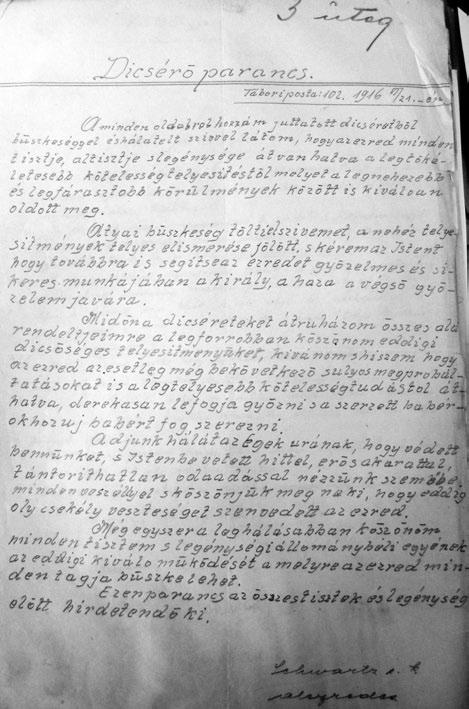 3 üteg
Dicsérő parancs.
Tábori posta: 102. 1916 VI/21.-én
A minden oldabrol hozzám juttatott dicséretből
büszkeséggel és hálatelt szivvel látom, hogy az ezred minden
tisztje, altisztje s legénysége át van halva a legtöké-
letesebb kötelesség telyesitéstől melyet a legnehezebb
és legfárasztobb körülmények között is kiválóan
oldott meg.
Atyai büszkeség tölti el szivemet, a nehéz telye-
silmények telyes elismerése jölött, s kérem az Istent
hogy továbbra is segitse az ezredet győzelmes és si-
keres munkájában a király, a haza a végső győ-
zelem javára.
Midőn a dicséreteket átruházom összes alá
rendeltjeimre a legforrobban köszönöm eddigi
dicsőséges telyesitményüket, kivánom s hiszem hogy
az ezred az esetleg még bekövetkező sulyos megprobál-
tatásokat is a legtelyesebb kötelességtudástol át-
hatva, derekasan le fogja győzni s a szerzett babér-
okhoz uj babért fog szerezni.
Adjunk hálát az égek urának, hogy védett
bennünket, s Istenbe vetett hittel, erős akarattal,
tántorithatlan odaadással nézzünk szembe
minden veszéllyel s köszönjük meg neki, hogy eddig
oly csekély veszteséget szenvedett az ezred.
Még egyszer a leghálásabban köszönöm
minden tisztem s legénységi állománybeli egyének
az eddigi kiváló müködését a melyre az ezred min-
den tagja büszke lehet.
Ezen parancs az összes tisztek és legénység
előtt hirdetendő ki.
Schwartz s. k.
alezredes